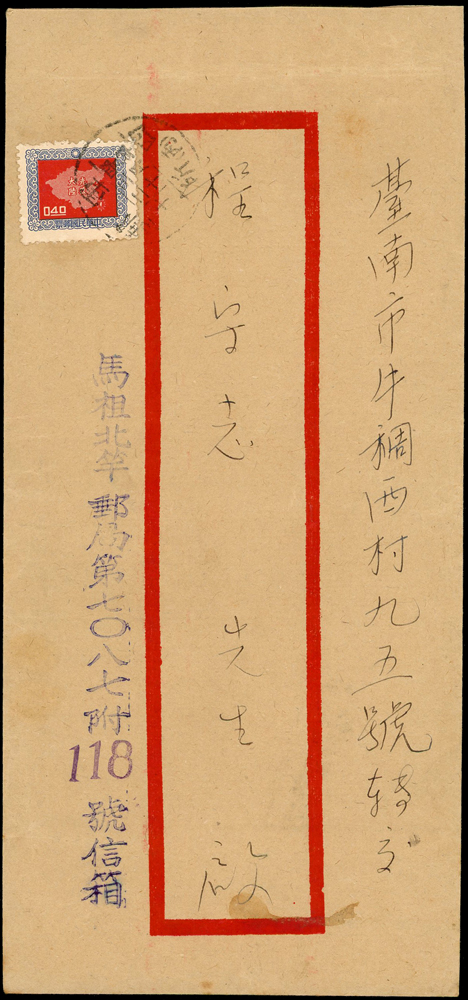 臺南市牛稠西村九五號轉交
程守志 先生 啟
馬祖北竿郵局第七〇八七附118號信箱
0.40